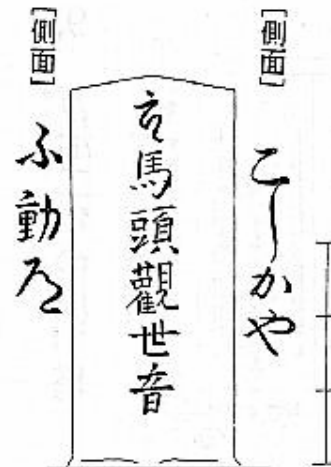 [側面]
こしかや
馬頭觀世音
[側面]
ふ動道